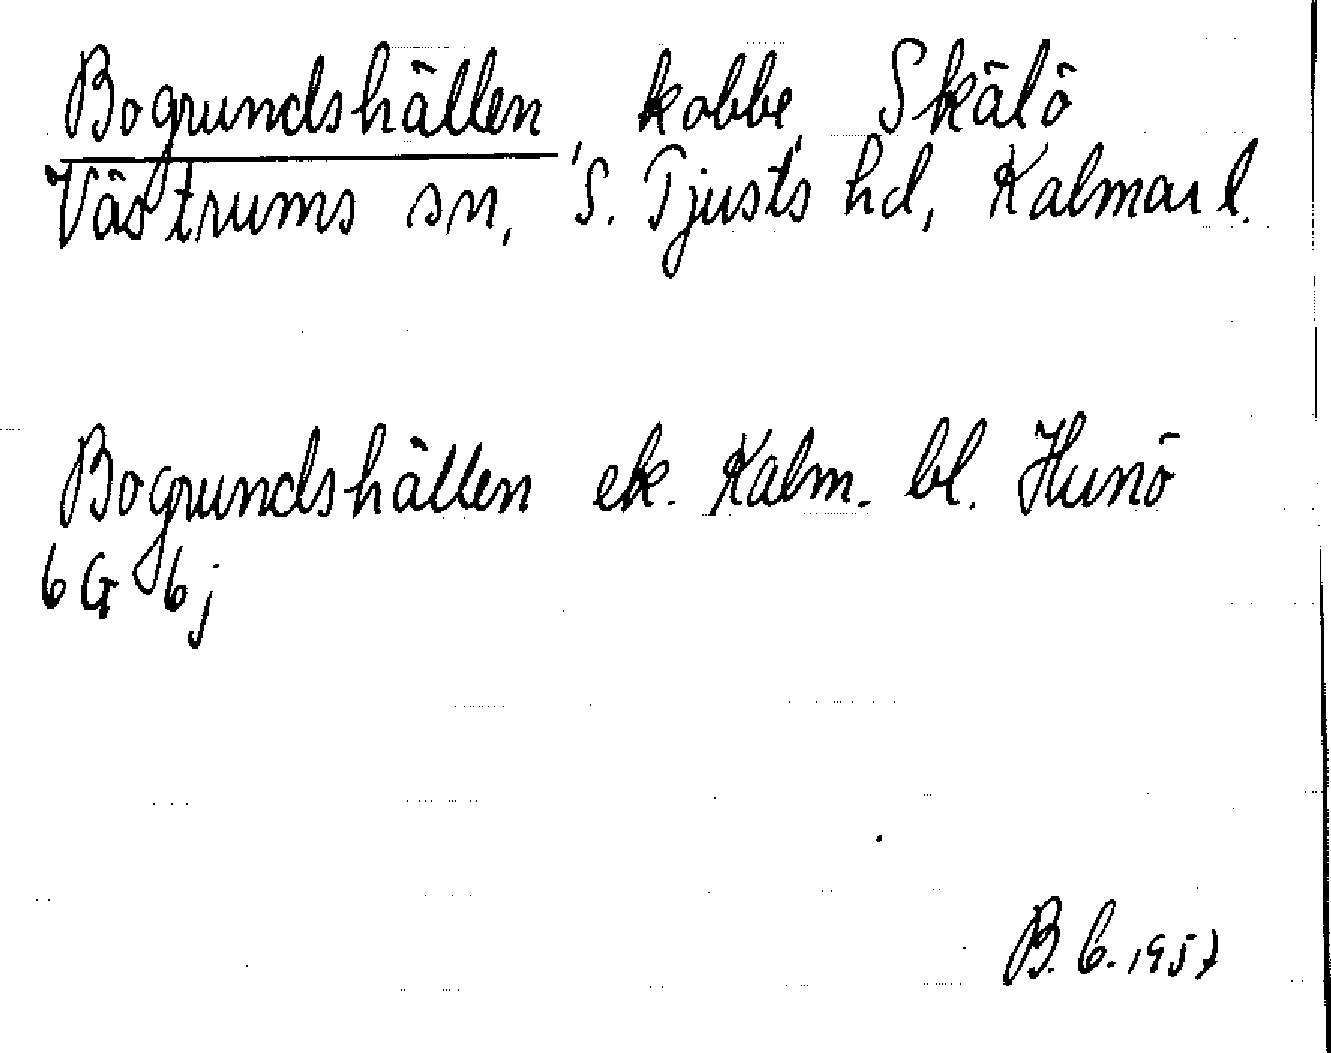 Bogrundshällen, kobbe, Skälö
Västrums sn, S. Tjusts hd, Kalmar l.
Bogrundshällen ek. Kalm. bl. Hunö
6 G 6 j
B. C. 1957